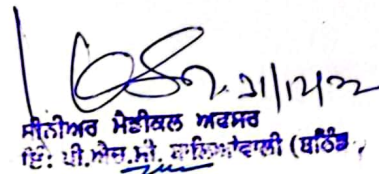 21/12/22
ਸੀਨੀਅਰ ਮੈਡੀਕਲ ਅਫਸਰ
ਇੰ: ਪੀ.ਐਚ.ਸੀ. ਬਾਲਿਆਂਵਾਲੀ (ਬਠਿੰਡਾ